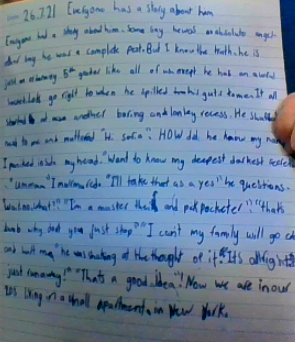 26.7.21 Everyone has a story about him
Everyone had a story about him. Some say he was an absolute angel
other say he was a complete pest. But I know the truth. he is
just an ordinary 5th grader like all of us except he has an awful
secret. Lets go right to when he spilled his guts to me. It all
started at was another boring and lonley recess. He
next to me and muttered "Hi Sofia". HOW did he know my name
I panicked inside my head. "Want to know my deepest darkest secret
"ummm" I murmured. "I'll take that as a yes" he questions.
Wait no, what!" "Im a master thief and pak pocketer". "thats
dumb why dont you just stop" "I can't my family will go
and hurt me," he was shaking at the thought of it. "It's allright
just runaway!" "Thats a good idea"! Now we are in our
20s living in a small apartment in New York.